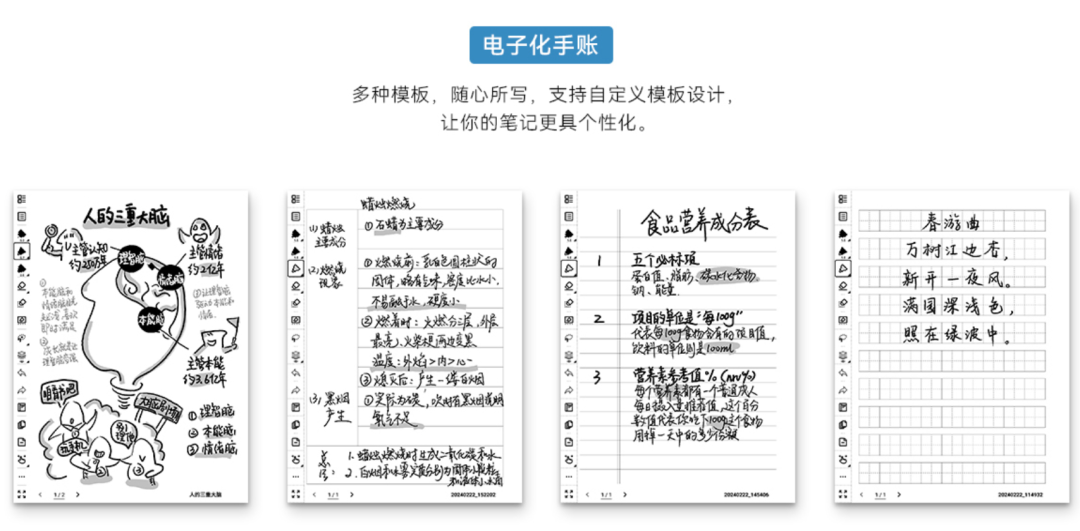 电子化手账
多种模板，随心所写，支持自定义模板设计，
让你的笔记更具个性化。
人的三重大脑
主管认知
约250万年
主管情绪
约2亿年
理智脑
情绪脑
本能脑
主管本能
约3.6亿年
①理智脑
②本能脑
③情绪脑
1/2
人的三重大脑
蜡烛燃烧
(1)蜡烛
主要成分
①石蜡为主要成分
(2)燃烧
现象
①燃烧前：乳白色圆柱状的
固体，略有气味，密度比水小，
不易融于水，硬度小
②燃着时：火焰分三层，外层
最亮、火柴梗两边变黑
温度：外焰>内>心
③熄灭后：产生一缕白烟
(3)黑烟
产生
氧气不足
总
结：
1.蜡烛燃烧时生成二氧化碳和水
1/1
20240222_152202
食品营养成分表
1 五个必标项
蛋白质、脂肪、碳水化合物、
钠、能量.
2 项目的单位是“每100g”
代表每100g食物含有的项目值，
饮料的单位则是100ml
3 营养素参考值%(nrv%)
每个营养素都有一个普通成人
每日摄入量推荐值，这个百分
数值代表你吃下100g这个食物
用掉一天中的多少份额
1/1
20240222_145406
春游曲
万树江边杏，
新开一夜风。
满园深浅色，
照在绿波中。
1/1
20240222_114932